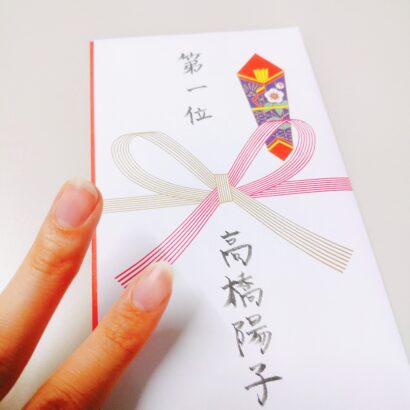 第一位
高橋陽子